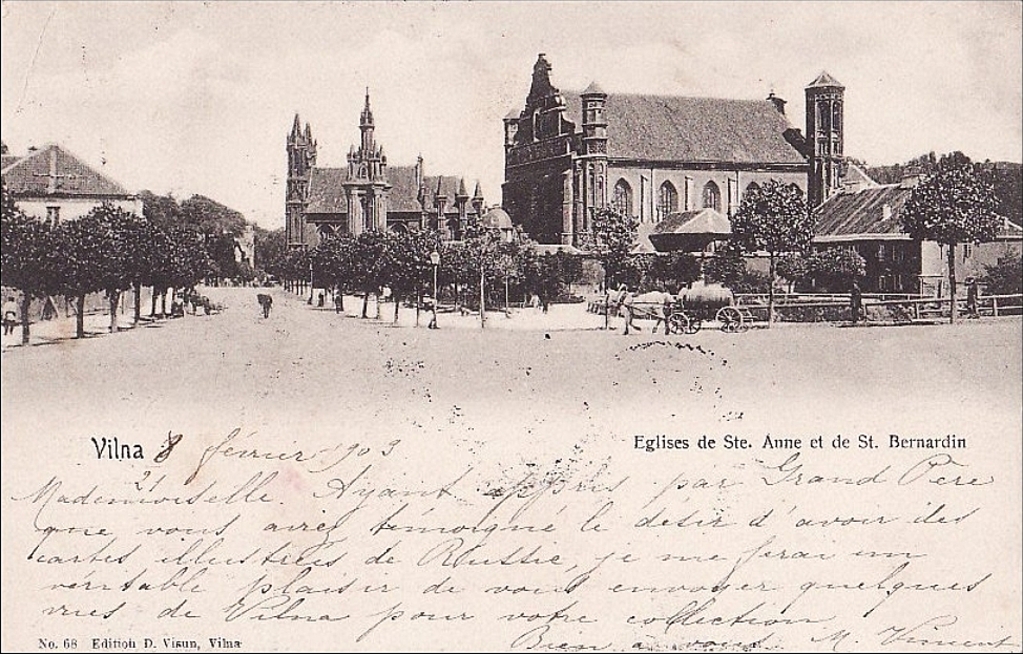 Vilna 8 février 1903
21
Eglises de Ste. Anne et de St. Bernardin
Mademoiselle. Ayant appris par Grand Père
que vous aviez témoigné le désir d'avoir des
cartes illustrées de Russie, je me ferai un
véritable plaisir de vous envoyer quelques
vues de Vilna pour votre collection.
Bien à vous. M. Vincent
No. 68 Edition D. Visun, Vilna